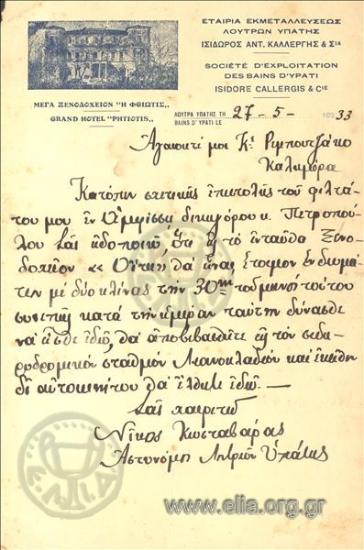 ΕΤΑΙΡΙΑ ΕΚΜΕΤΑΛΛΕΥΣΕΩΣ
ΛΟΥΤΡΩΝ ΥΠΑΤΗΣ
ΙΣΙΔΩΡΟΣ ΑΝΤ. ΚΑΛΛΕΡΓΗΣ & Σια
SOCIÉTÉ D'EXPLOITATION
DES BAINS D'YPATI
ISIDORE CALLERGIS & Cie
ΜΕΓΑ ΞΕΝΟΔΟΧΕΙΟΝ "Η ΦΘΙΩΤΙΣ"
GRAND HOTEL „PHTIOTIS„
ΛΟΥΤΡΑ ΥΠΑΤΗΣ ΤΗ 27-5-1933
BAINS D'YPATI LE
Ἀγαπητέ μοι Κε
Καλημέρα
Κατόπιν σχετικῆς ἐπιστολῆς τοῦ φιλτά
του μου ἐν δικηγόρου κ. Πετροπού
λου Σᾶς εἰδοποιῶ, ὅτι εἰς τό ἐνταῦθα Ξενο
δοχεῖον « Οἴτη » θά εἶναι ἕτοιμον ἕν δωμά
τιον μέ δύο κλίνας τήν 30ην τοῦ μηνός τούτου
συνεπῶς κατά τήν ἡμέραν ταύτην δύνασθε
νά ἔλθετε ἐδῶ, θά ἀποβιβασθεῖτε εἰς τόν σιδη
ροδρομικόν σταθμόν Λιανοκλαδίου καί ἐκεῖθεν
δι' αὐτοκινήτου θά ἔλθετε ἐδῶ. —
Σᾶς χαιρετῶ
Νῖκος Κωσταβάρας
Ἀστυνόμος Λουτρῶν Ὑπάτης
Ε.Λ.Ι.Α
www.elia.org.gr